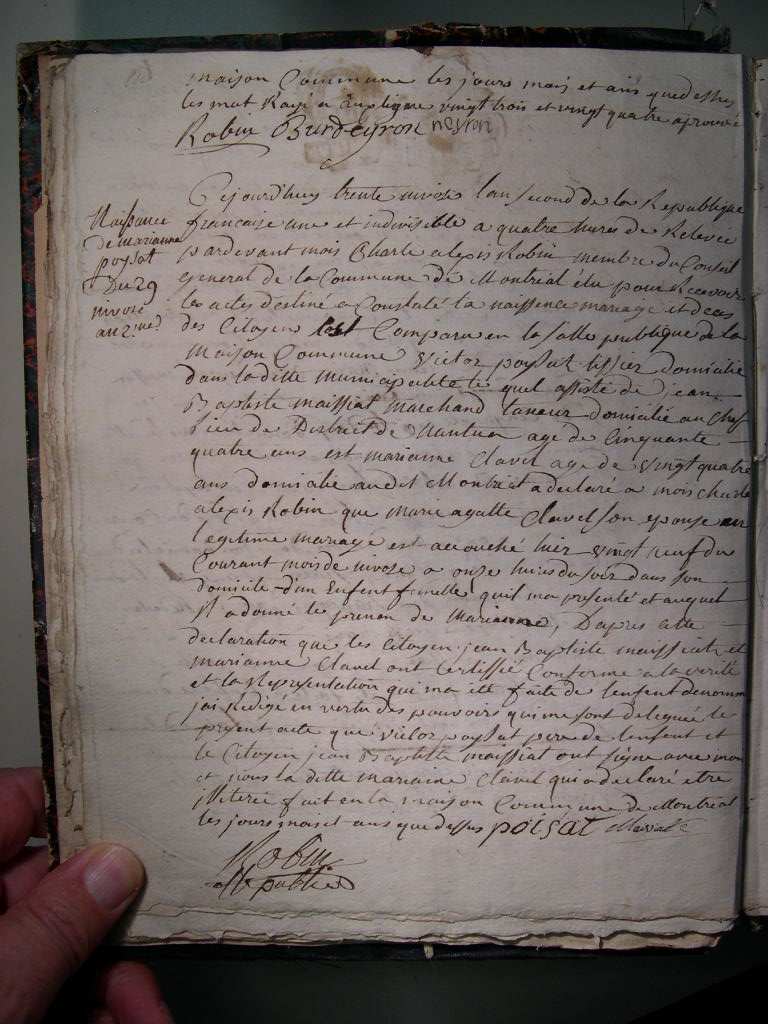 maison Commune les jours mois et ans quedessus
les mot Rayé a lingligne vingt trois et vingt quatre aprouvé
Robin Burdeyron neyron
Naissance
de marianne
poysat
Du 29
nivose
an 2.me
Cejourd'huy trente nivose lan second de la Republique
francaise une et indivisible a quatre hures de Relevée
pardevant mois Charle alexis Robin membre du Conseil
general de la Commune de Montréal élu pour Recevoir
les actes destiné a Constaté la naissence mariage et deces
des Citoyens est Comparu en la salle publique de la
maison Commune victor poysat tissier domicilié
dans la ditte municipalité le quel assisté de jean
Baptiste maissiat marchand taneur domicilié au chef
lieu de District de Nantua age de Cinquante
quatre ans est marianne Clavel age de vingt quatre
ans domicilié audit Montréal a declaré a mois charle
alexis Robin que Marie agatte Clavel son epouse en
legitime mariage est accouché hier vingt neuf du
Courant mois de nivose a onze hures du soir dans son
domicile d'un Enfent femelle quil ma presenté et auquel
Il a donné le prenon de Marianne, Dapres cette
declaration que les Citoyen jean Baptiste maissiat et
marianne Clavel ont Certiffié Conforme a la verité
et la Representation qui ma eté faite de lenfent denommé
jai Redigé en vertu des pouvoirs qui me sont delegués le
present acte que victor poysat pere de lenfent et
le Citoyen jean Baptiste maissiat ont signe avec moi
et nous la ditte marianne Clavel qui a declaré etre
illiterée fait en la maison Commune de Montréal
les jours mois et ans que dessus poisat Maissiat
Robin
off publice